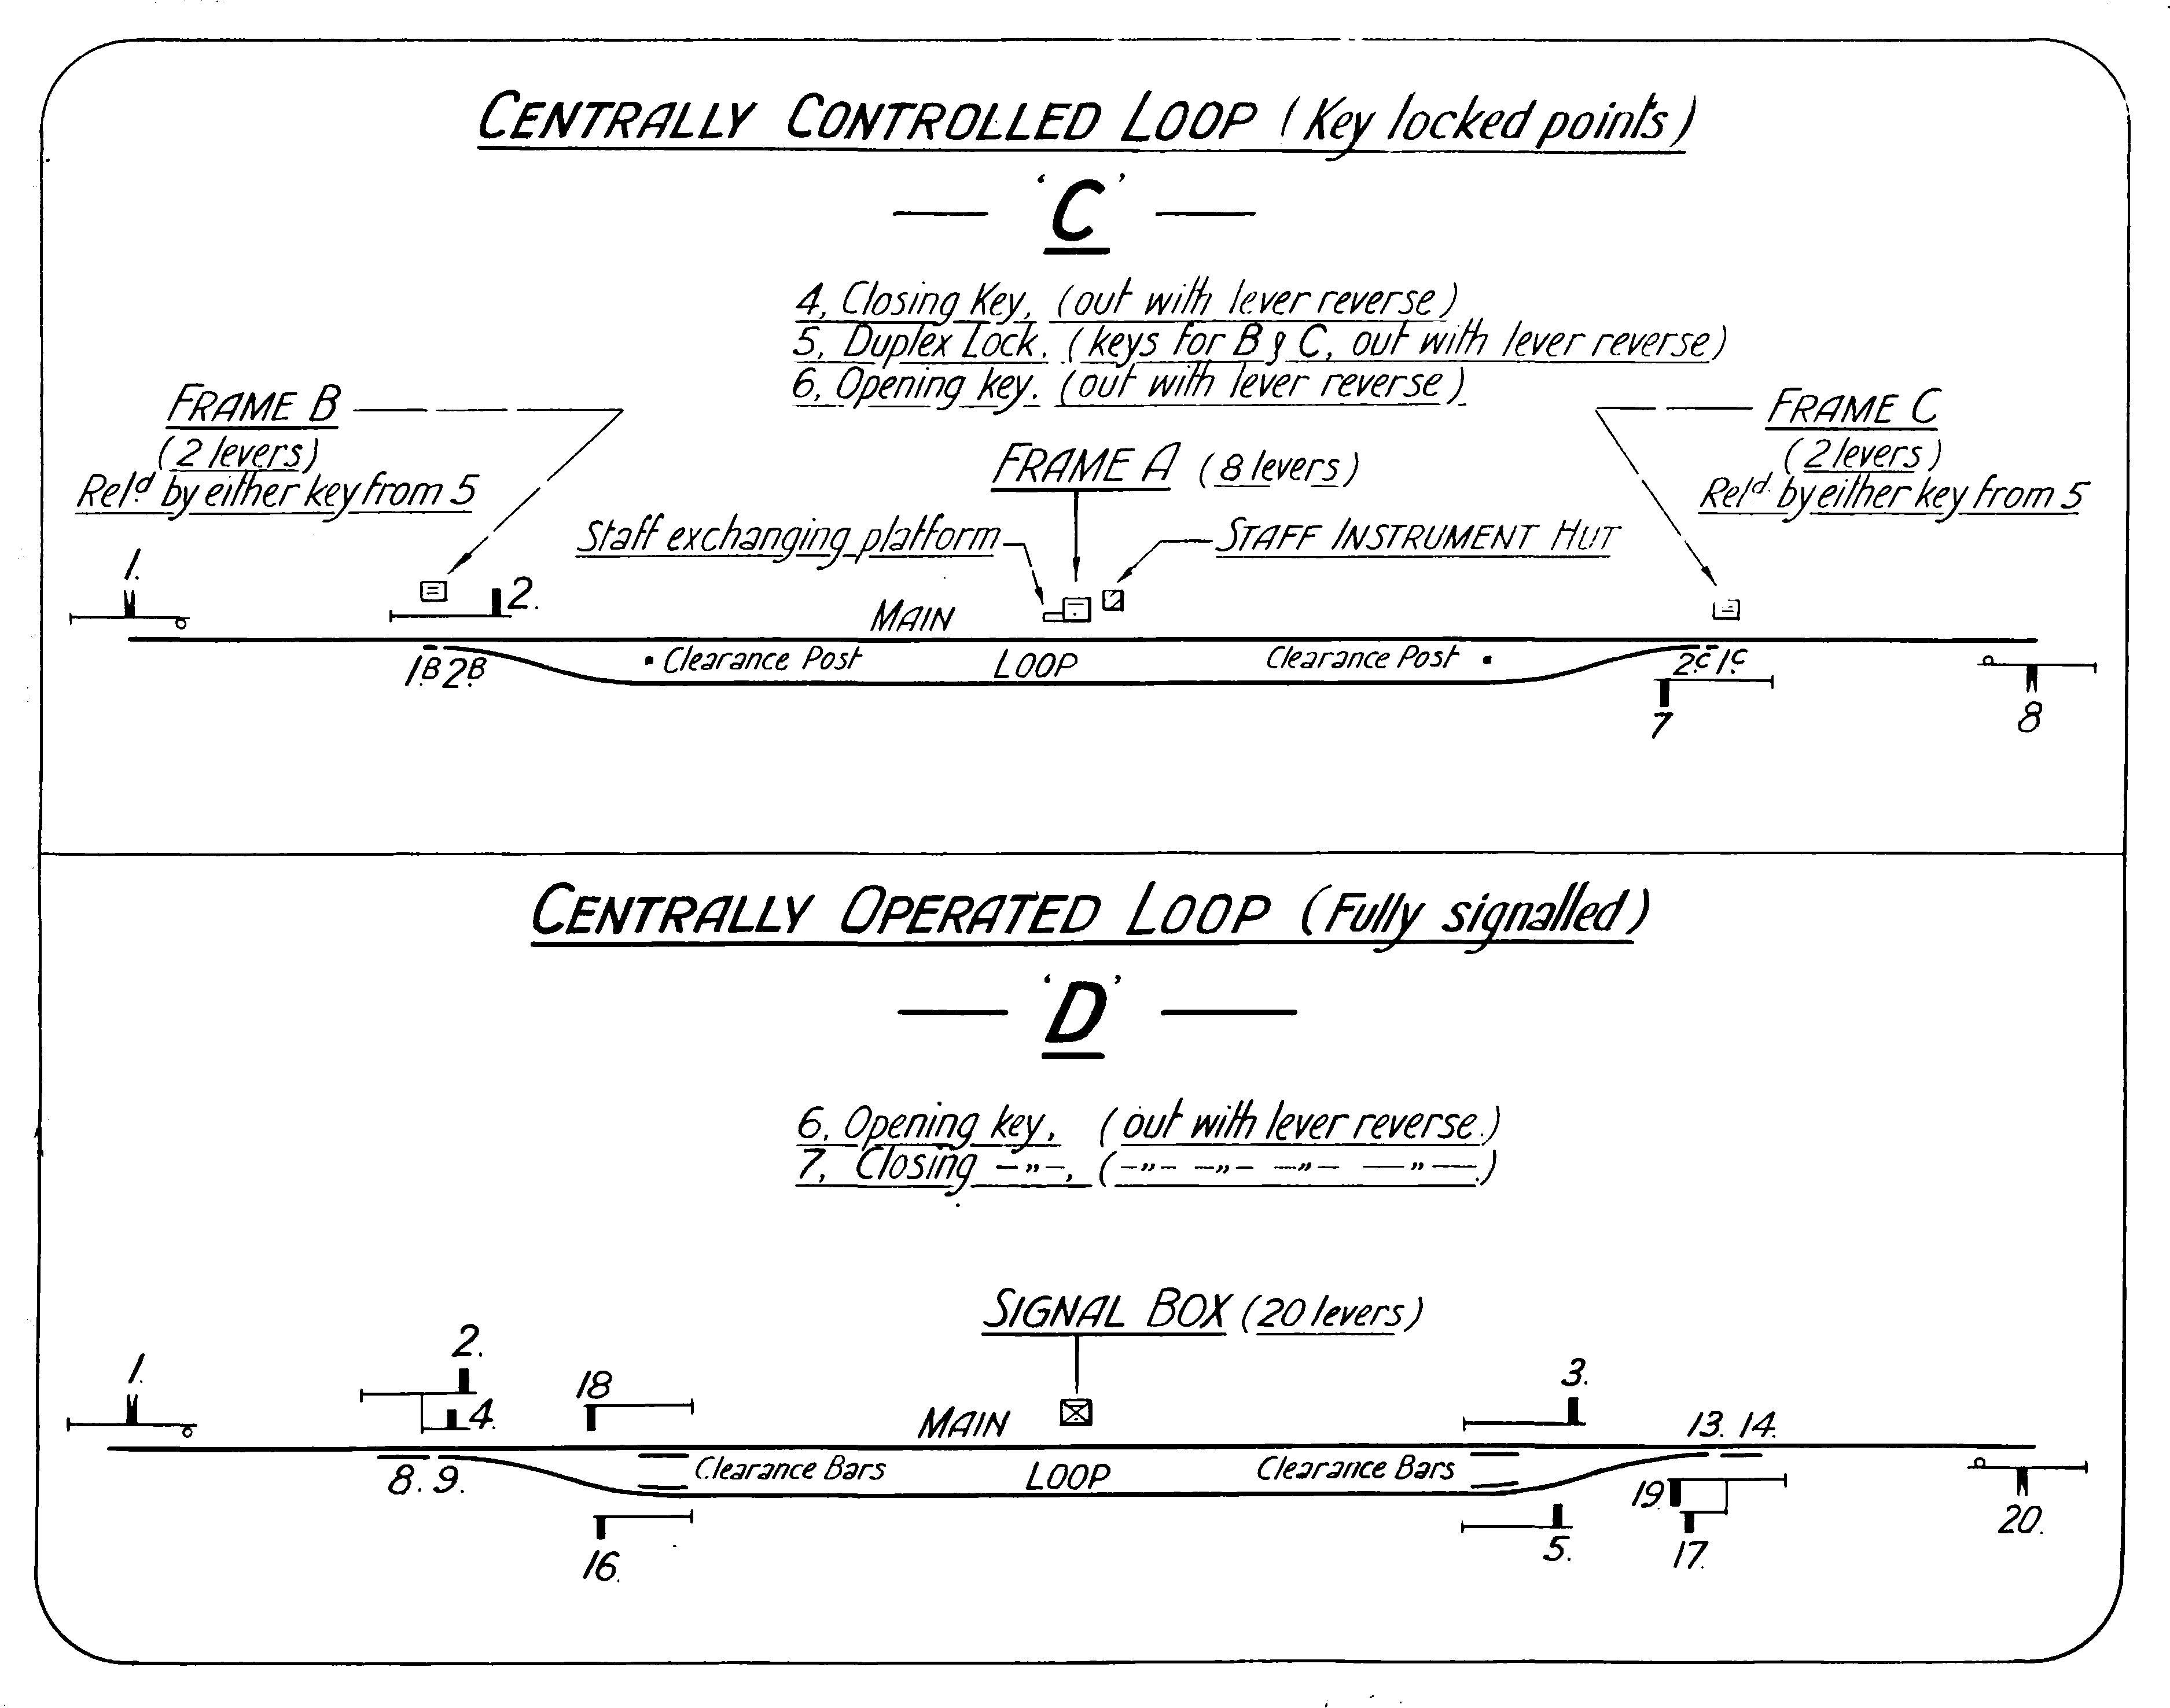 CENTRALLY CONTROLLED LOOP (Key locked points)
'C'
4, Closing Key, (out with lever reverse)
5, Duplex Lock, (keys for B & C, out with lever reverse)
6, Opening key. (out with lever reverse)
FRAME B
(2 levers)
Rel.d by either key from 5
FRAME A (8 levers)
FRAME C
(2 levers)
Rel.d by either key from 5
Staff exchanging platform
STAFF INSTRUMENT HUT
1.
2.
MAIN
1.B 2.B
Clearance Post
LOOP
Clearance Post
2.C 1.C
7
8
CENTRALLY OPERATED LOOP (Fully signalled)
'D'
6, Opening key, (out with lever reverse.)
7, Closing -"-, (-"- -"- -"- -"-.)
SIGNAL BOX (20 levers)
1.
2.
4.
18
MAIN
3.
13. 14.
8. 9.
Clearance Bars
LOOP
Clearance Bars
19
16.
5.
17.
20.